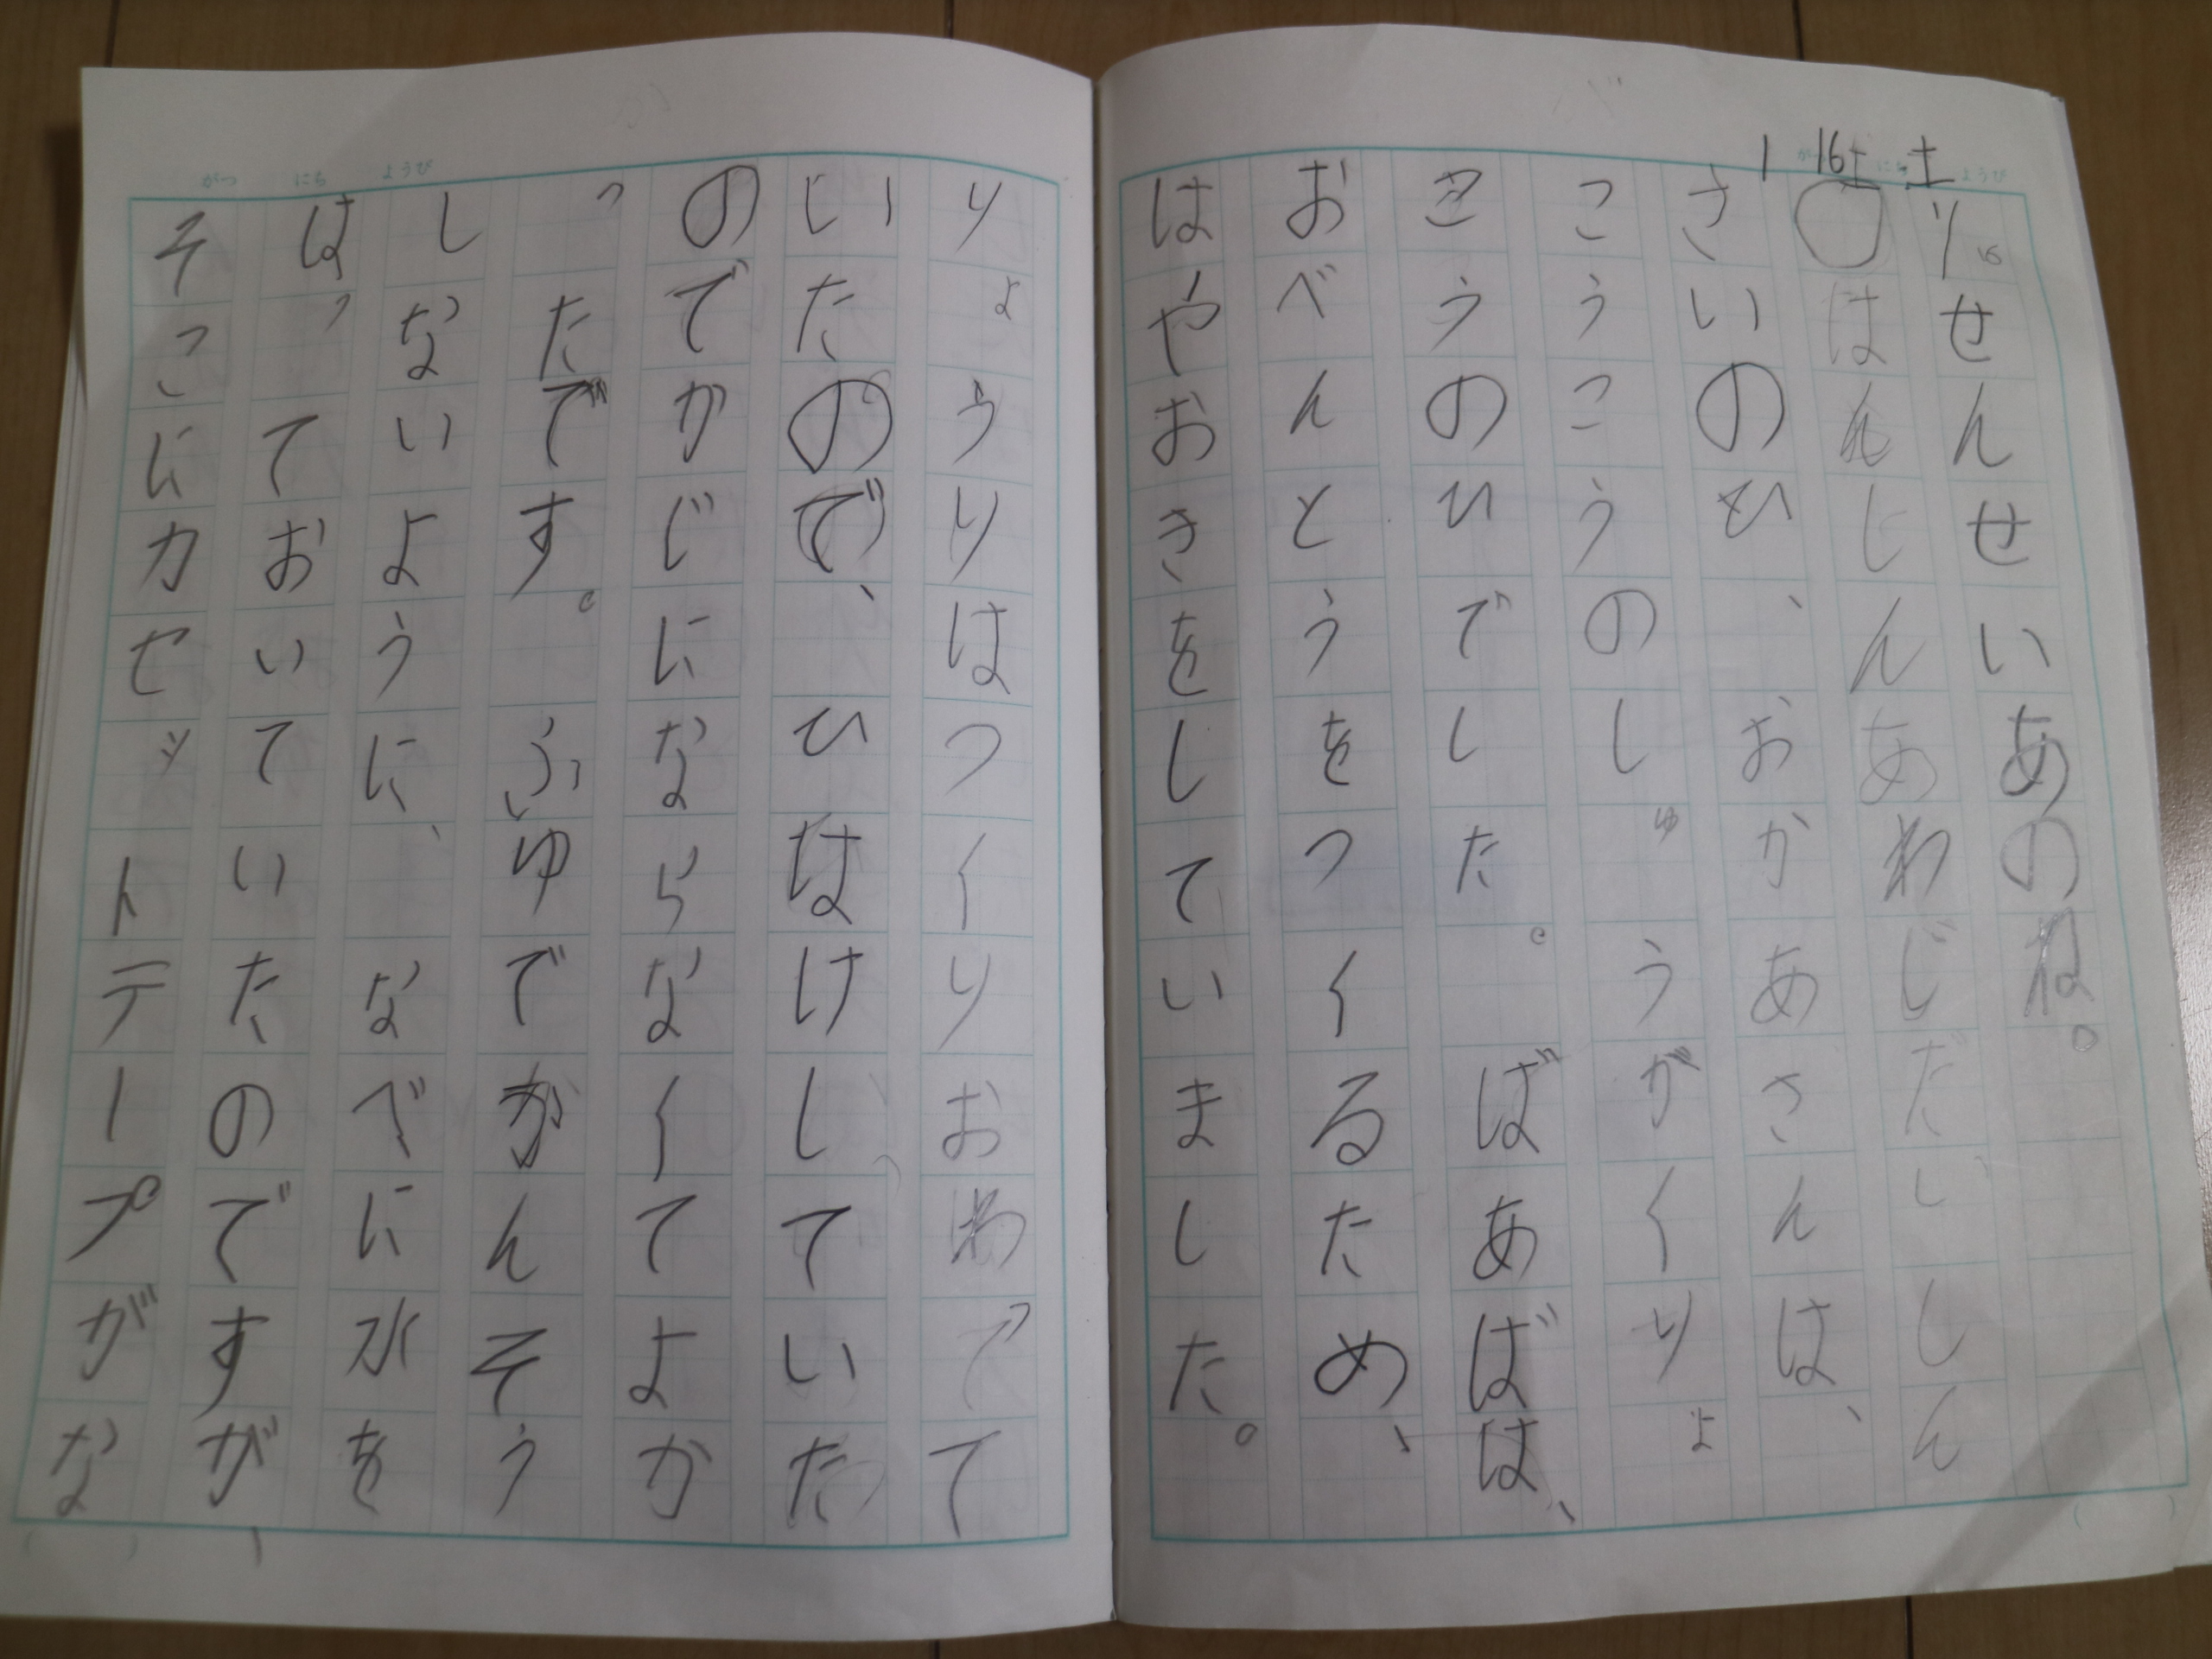 1がつ16にち土ようび
1/16せんせいあのね。
〇はんしんあわじだいしん
さいのひ、おかあさんは、
こうこうのしゅうがくりょ
こうのひでした。ばあばは、
おべんとうをつくるため、
はやおきをしていました。
がつ にち ようび
りょうりはつくりおわって
いたので、ひはけしていた
のでかじにならなくてよか
ったです。ふゆでかんそう
しないように、なべに水を
はっておいていたのですが
そこにカセットテープがな